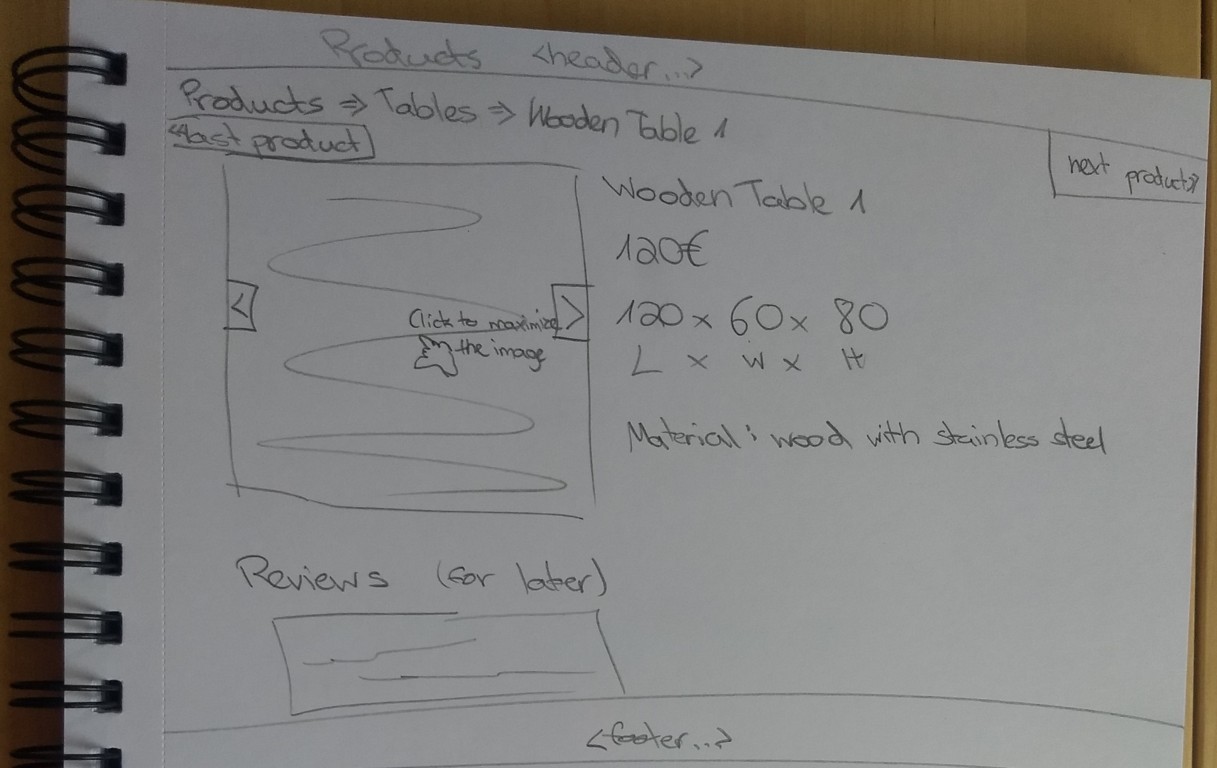 Products <header...>
Products ⇒ Tables ⇒ Wooden Table 1
<last product
next product>
Wooden Table 1
120€
<
Click to maximize
>
the image
120 x 60 x 80
L x W x H
Material: wood with stainless steel
Reviews (for later)
<footer...>